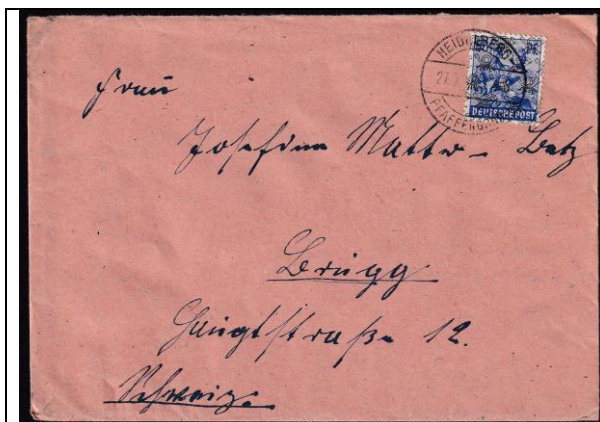 HEIDELBERG
27.7.
PFAFFENG
DEUTSCHE POST
Frau
Josefine Matter - Betz
Brugg
Hauptstraße 12.
Schweiz.